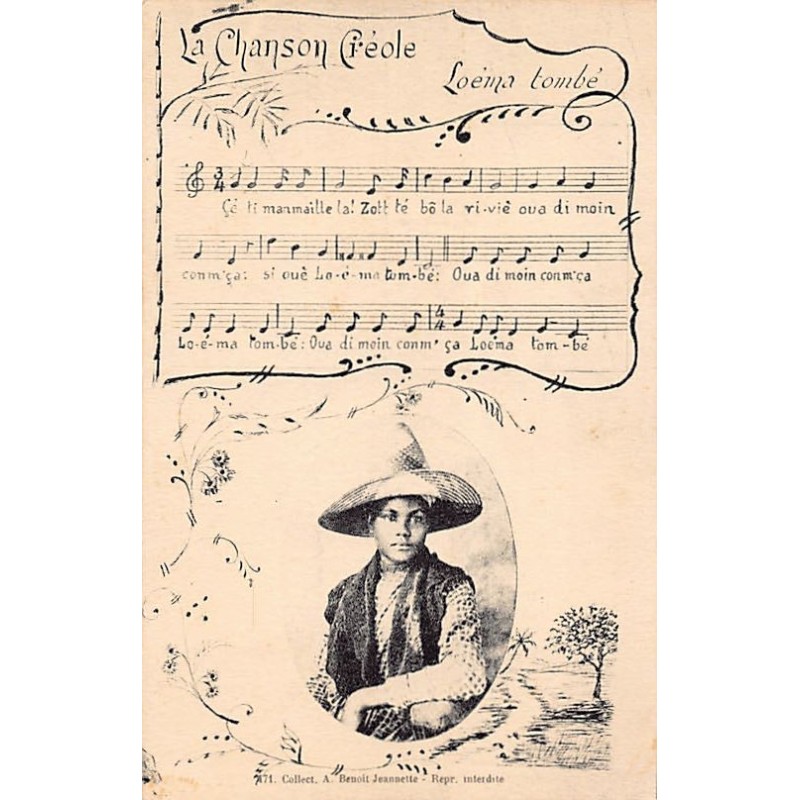 La Chanson Créole
Loéma tombé
3 4
Çé ti manmaille la! Zott té bô la ri-viè oua di moin
conm'ça: si ouè Lo-é-ma tom-bé: Oua di moin conm'ça
4 4
Lo-é-ma tom-bé: Oua di moin conm' ça Loéma tom-bé
471. Collect. A. Benoit Jeannette - Repr. interdite